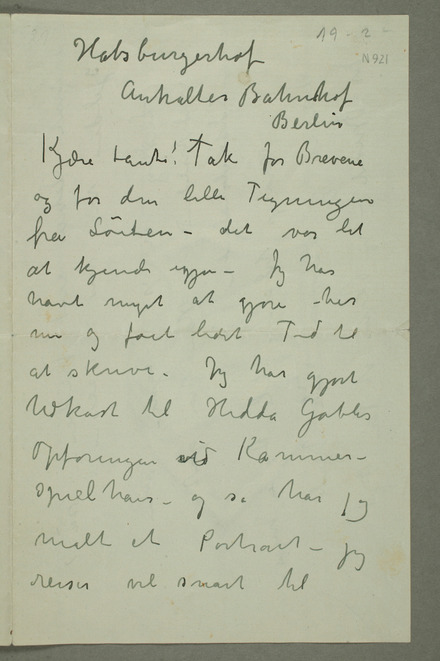 19-2-
N 921
Habsburgerhof
Anhalter Bahnhof
Berlin
Kjære Tante! Tak for Brevene
og for den lille Tegningen
fra Löiten – det var let
at kjende igjen – Jeg har
havt meget at gjøre her
nu og fået lidet Tid til
at skrive – Jeg har gjort
Udkast til Hedda Gablers
Opføringen vid Kammer-
spielhaus – og så har jeg
malt et Portræt – jeg
reiser vel snart til